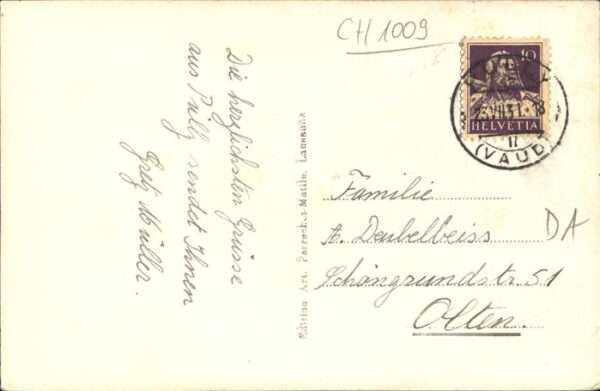 CH 1009
Die herzlichsten Grüsse
aus Pully sendet Ihnen
Gretj Müller.
Edition Art. Perrochet-Matile, Lausanne
10
HELVETIA
PULLY
VII 31 - 18
(VAUD)
Familie
A. Deubelbeiss
Schöngrundstr. 51
Olten.
DA